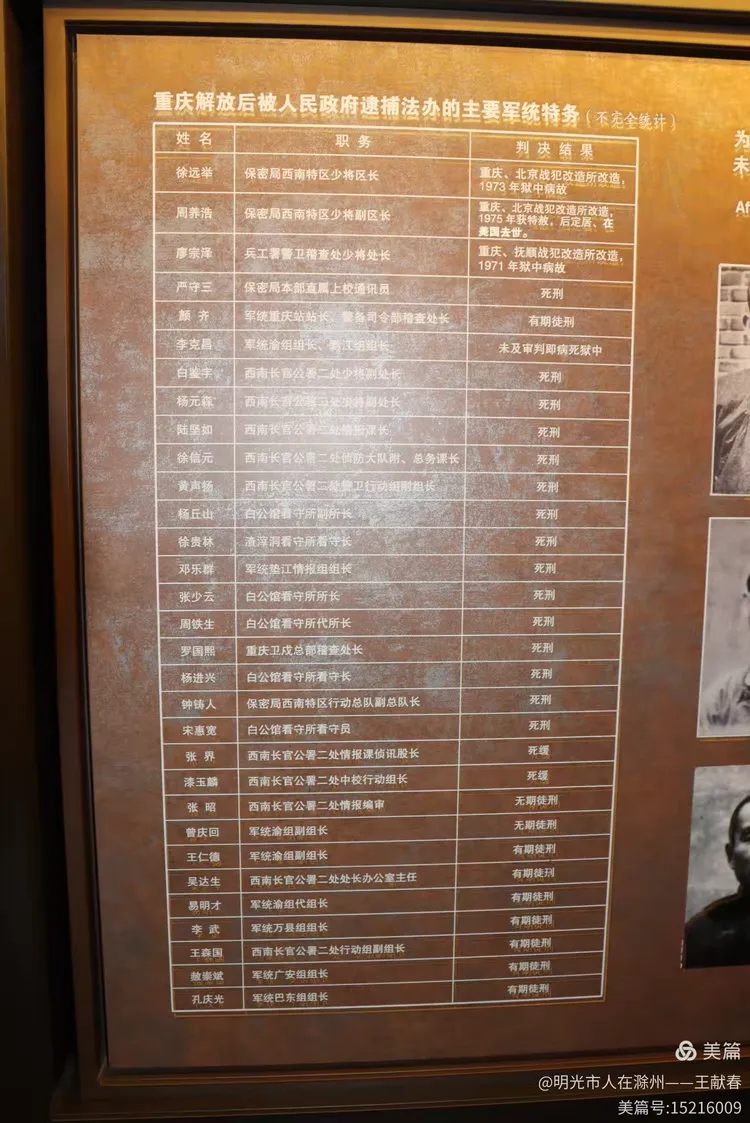 重庆解放后被人民政府逮捕法办的主要军统特务（不完全统计）
姓名 职务 判决结果
徐远举 保密局西南特区少将区长 重庆、北京战犯改造所改造，
1973年狱中病故
周养浩 保密局西南特区少将副区长 重庆、北京战犯改造所改造，
1975年获特赦，后定居、在
美国去世。
廖宗泽 兵工署警卫稽查处少将处长 重庆、抚顺战犯改造所改造，
1971年狱中病故
严守三 保密局本部直属上校通讯员 死刑
颜齐 军统重庆站站长、警备司令部稽查处长 有期徒刑
李克昌 军统渝组组长、綦江组组长 未及审判即病死狱中
白鉴宇 西南长官公署二处少将副处长 死刑
杨元森 西南长官公署二处少将副处长 死刑
陆坚如 西南长官公署二处情报课长 死刑
徐信元 西南长官公署二处侦防大队附、总务课长 死刑
黄声扬 西南长官公署二处警卫行动组副组长 死刑
杨丘山 白公馆看守所副所长 死刑
徐贵林 渣滓洞看守所看守长 死刑
邓乐群 军统垫江情报组组长 死刑
张少云 白公馆看守所所长 死刑
周铁生 白公馆看守所代所长 死刑
罗国熙 重庆卫戍总部稽查处长 死刑
杨进兴 白公馆看守所看守长 死刑
钟铸人 保密局西南特区行动总队副总队长 死刑
宋惠宽 白公馆看守所看守员 死刑
张界 西南长官公署二处情报课侦讯股长 死缓
漆玉麟 西南长官公署二处中校行动组长 死缓
张昭 西南长官公署二处情报编审 无期徒刑
曾庆回 军统渝组副组长 无期徒刑
王仁德 军统渝组副组长 有期徒刑
吴达生 西南长官公署二处处长办公室主任 有期徒刑
易明才 军统渝组代组长 有期徒刑
李武 军统万县组组长 有期徒刑
王森国 西南长官公署二处行动组副组长 有期徒刑
敖崇斌 军统广安组组长 有期徒刑
孔庆光 军统巴东组组长 有期徒刑
为
未
Af
美篇
@明光市人在滁州——王献春
美篇号:15216009